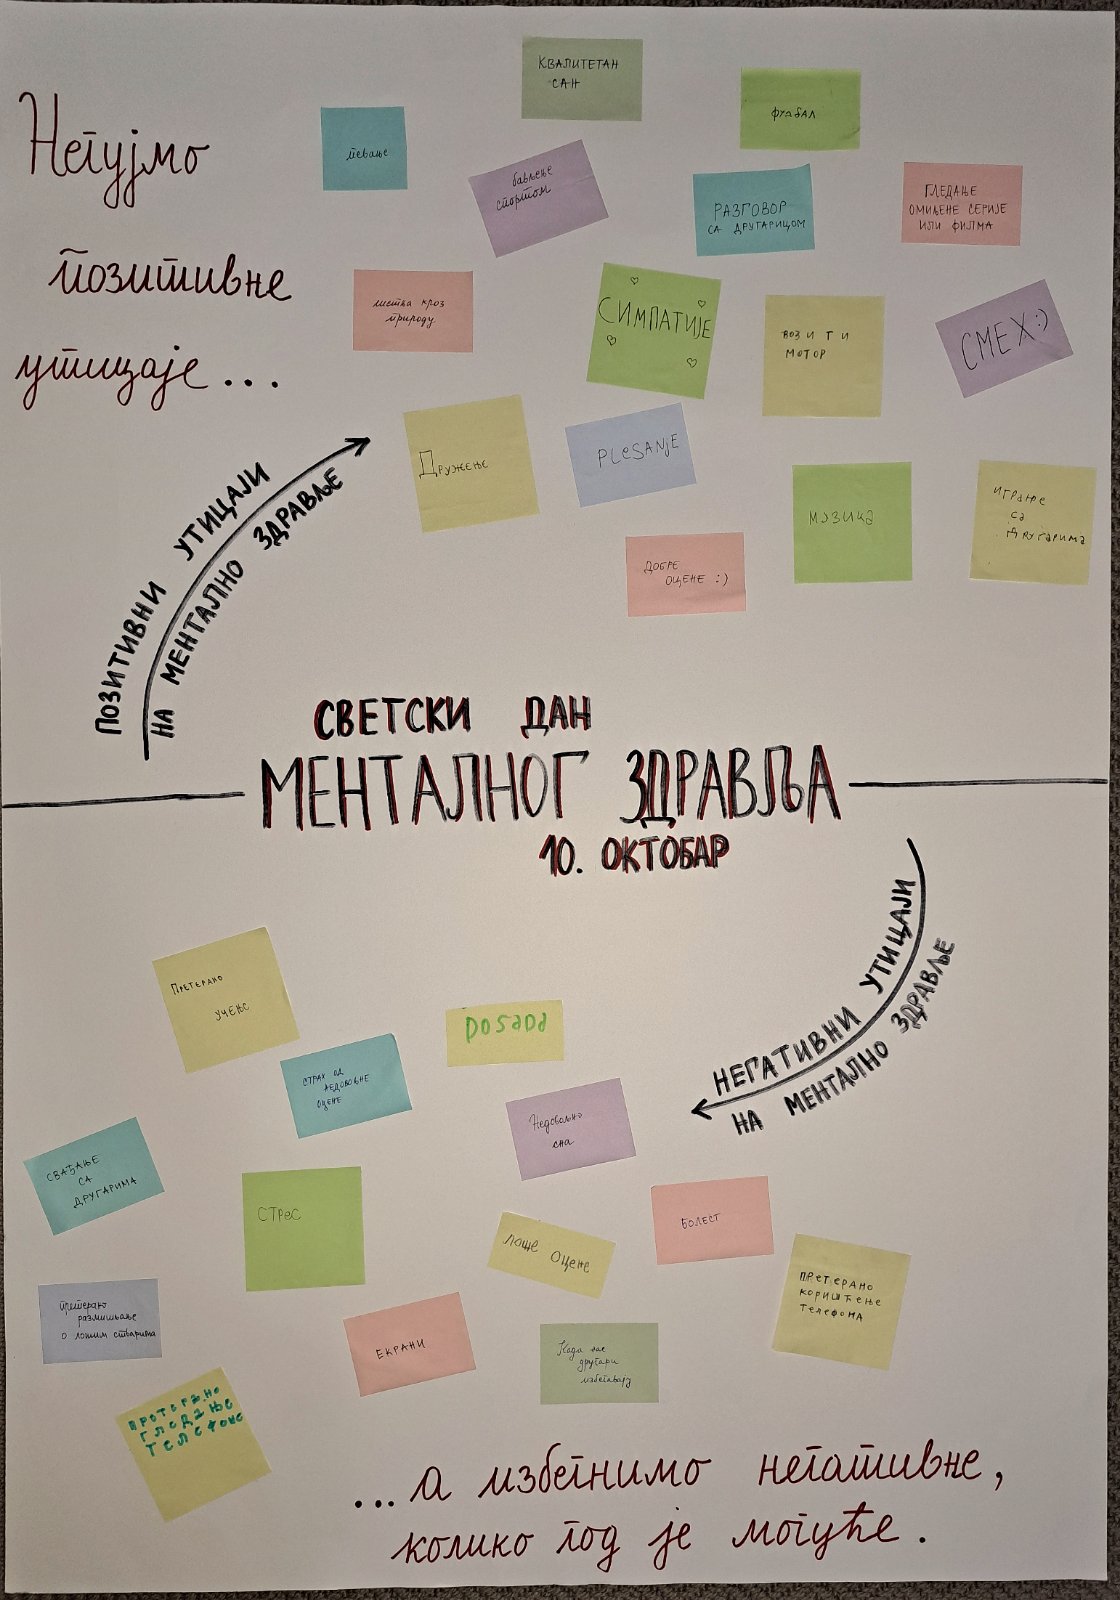 Негујмо
позитивне
утицаје...
КВАЛИТЕТАН
САН
фудбал
певање
бављење
спортом
РАЗГОВОР
СА ДРУГАРИЦОМ
ГЛЕДАЊЕ
ОМИЉЕНЕ СЕРИЈЕ
ИЛИ ФИЛМА
шетња кроз
природу
СИМПАТИЈЕ
ВОЗИТИ
МОТОР
СМЕХ:)
Дружење
PLESANJE
МУЗИКА
ИГРАЊЕ
СА
ДРУГАРИМА
ДОБРЕ
ОЦЕНЕ :)
ПОЗИТИВНИ УТИЦАЈИ
НА МЕНТАЛНО ЗДРАВЉЕ
СВЕТСКИ ДАН
МЕНТАЛНОГ ЗДРАВЉА
10. ОКТОБАР
НЕГАТИВНИ УТИЦАЈИ
НА МЕНТАЛНО ЗДРАВЉЕ
ПРЕТЕРАНО
УЧЕЊЕ
DOSADA
СТРАХ ОД
НЕДОВОЉНЕ
ОЦЕНЕ
Недовољно
сна
СВАЂАЊЕ
СА
ДРУГАРИМА
СТРЕС
ЛОШЕ ОЦЕНЕ
БОЛЕСТ
ПРЕТЕРАНО
КОРИШЋЕЊЕ
ТЕЛЕФОНА
претерано
размишљање
о лошим стварима
ЕКРАНИ
Када нас
другари
избегавају
ПРОТЕРАНО
ГЛЕДАЊЕ
ТЕЛЕФОНЕ
...а избегнимо негативне,
колико год је могуће.